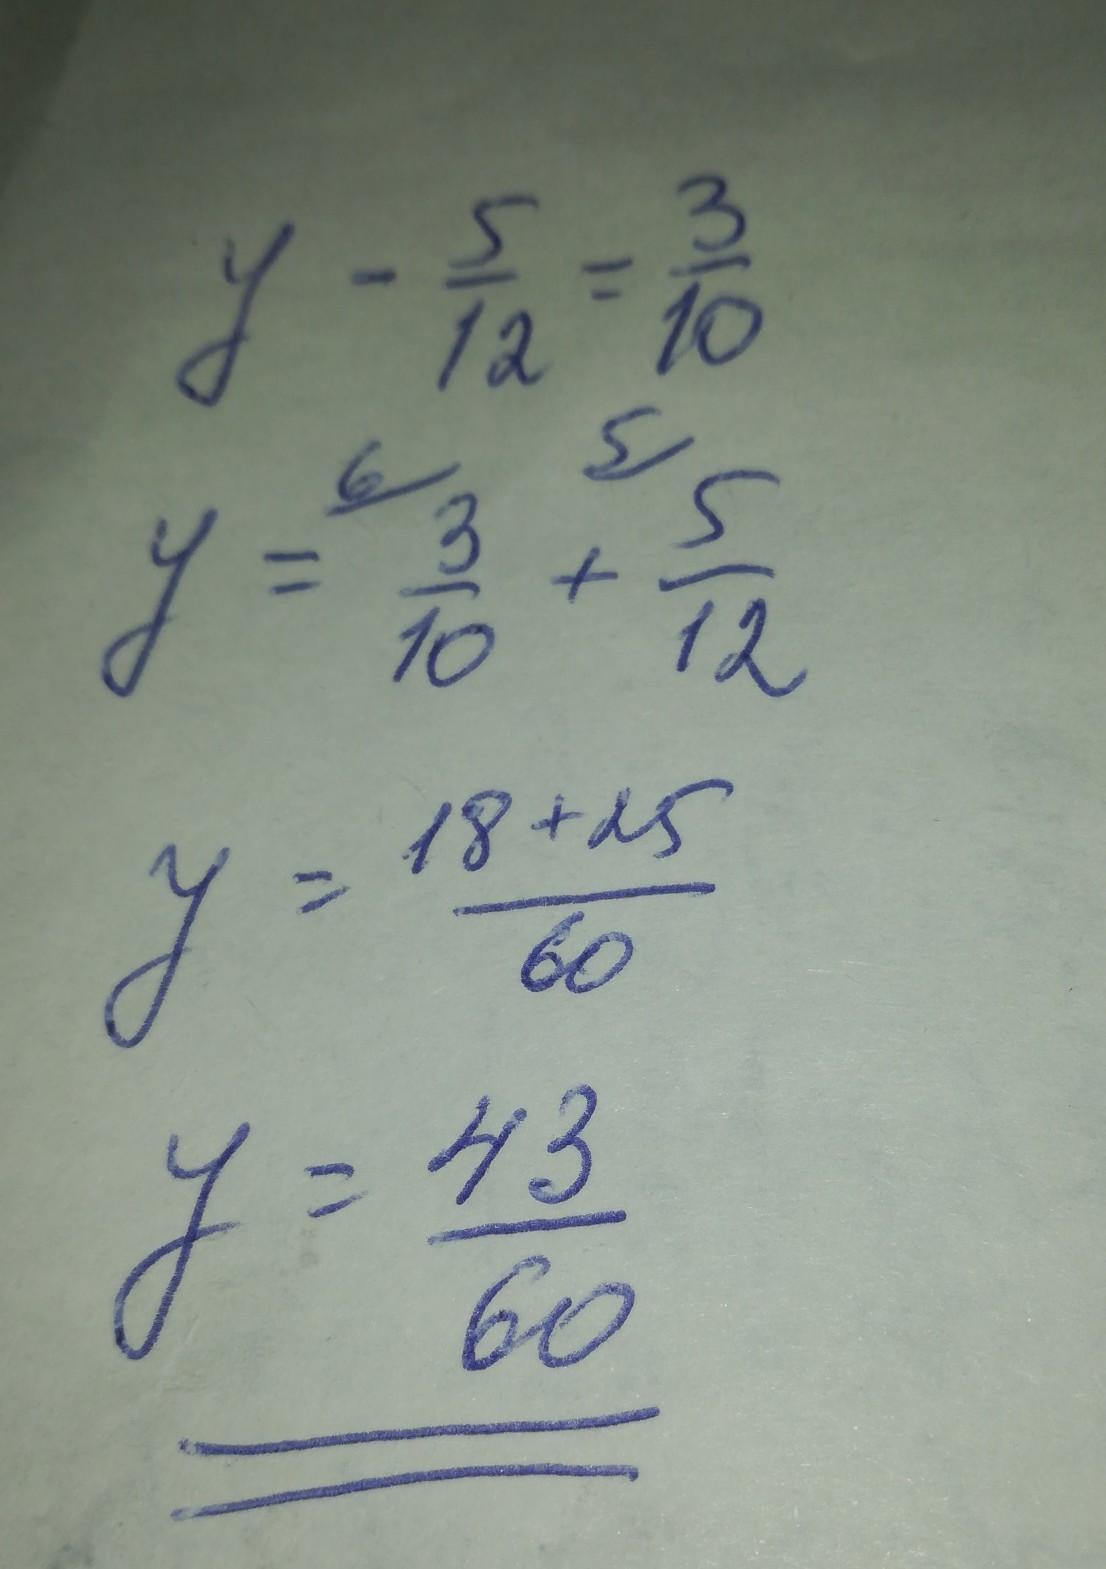 y - 5/12 = 3/10
y = 6 3/10 + 5 5/12
y = 18+25/60
y = 43/60